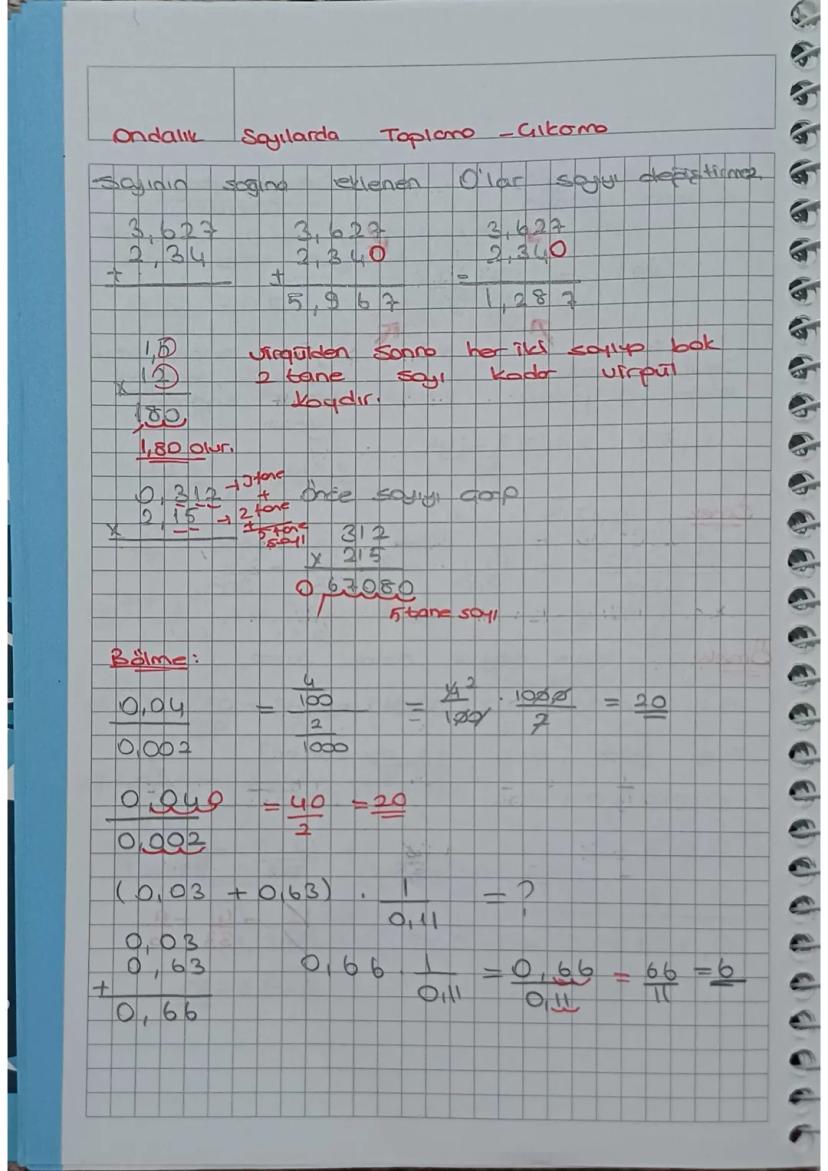 Ondalık Sayılarda Toplama - Çıkarma
Sayının sağına eklenen 0'lar sayıyı değiştirmez
3,627 3,627 3,627
2,34 2,340 2,340
+ + -
5,967 1,287
1,5 virgülden sonra her iki sayıyo bak
x 12 2 tane sayı kadar virgül
180 kaydır.
1,80 olur.
0,312 → 3 tane + Önce sayıyı çarp
x 2,15 → 2 tane
+ 5 tane sayı
312
x 215
0,67080
5 tane sayı
Bölme:
0,04 / 0,002 = 4/100 / 2/1000 = 4²/100 . 1000/2 = 20
0,040 / 0,002 = 40/2 = 20
(0,03 + 0,63) . 1/0,11 = ?
0,03
0,63 0,66 . 1/0,11 = 0,66/0,11 = 66/11 = 6
+
0,66